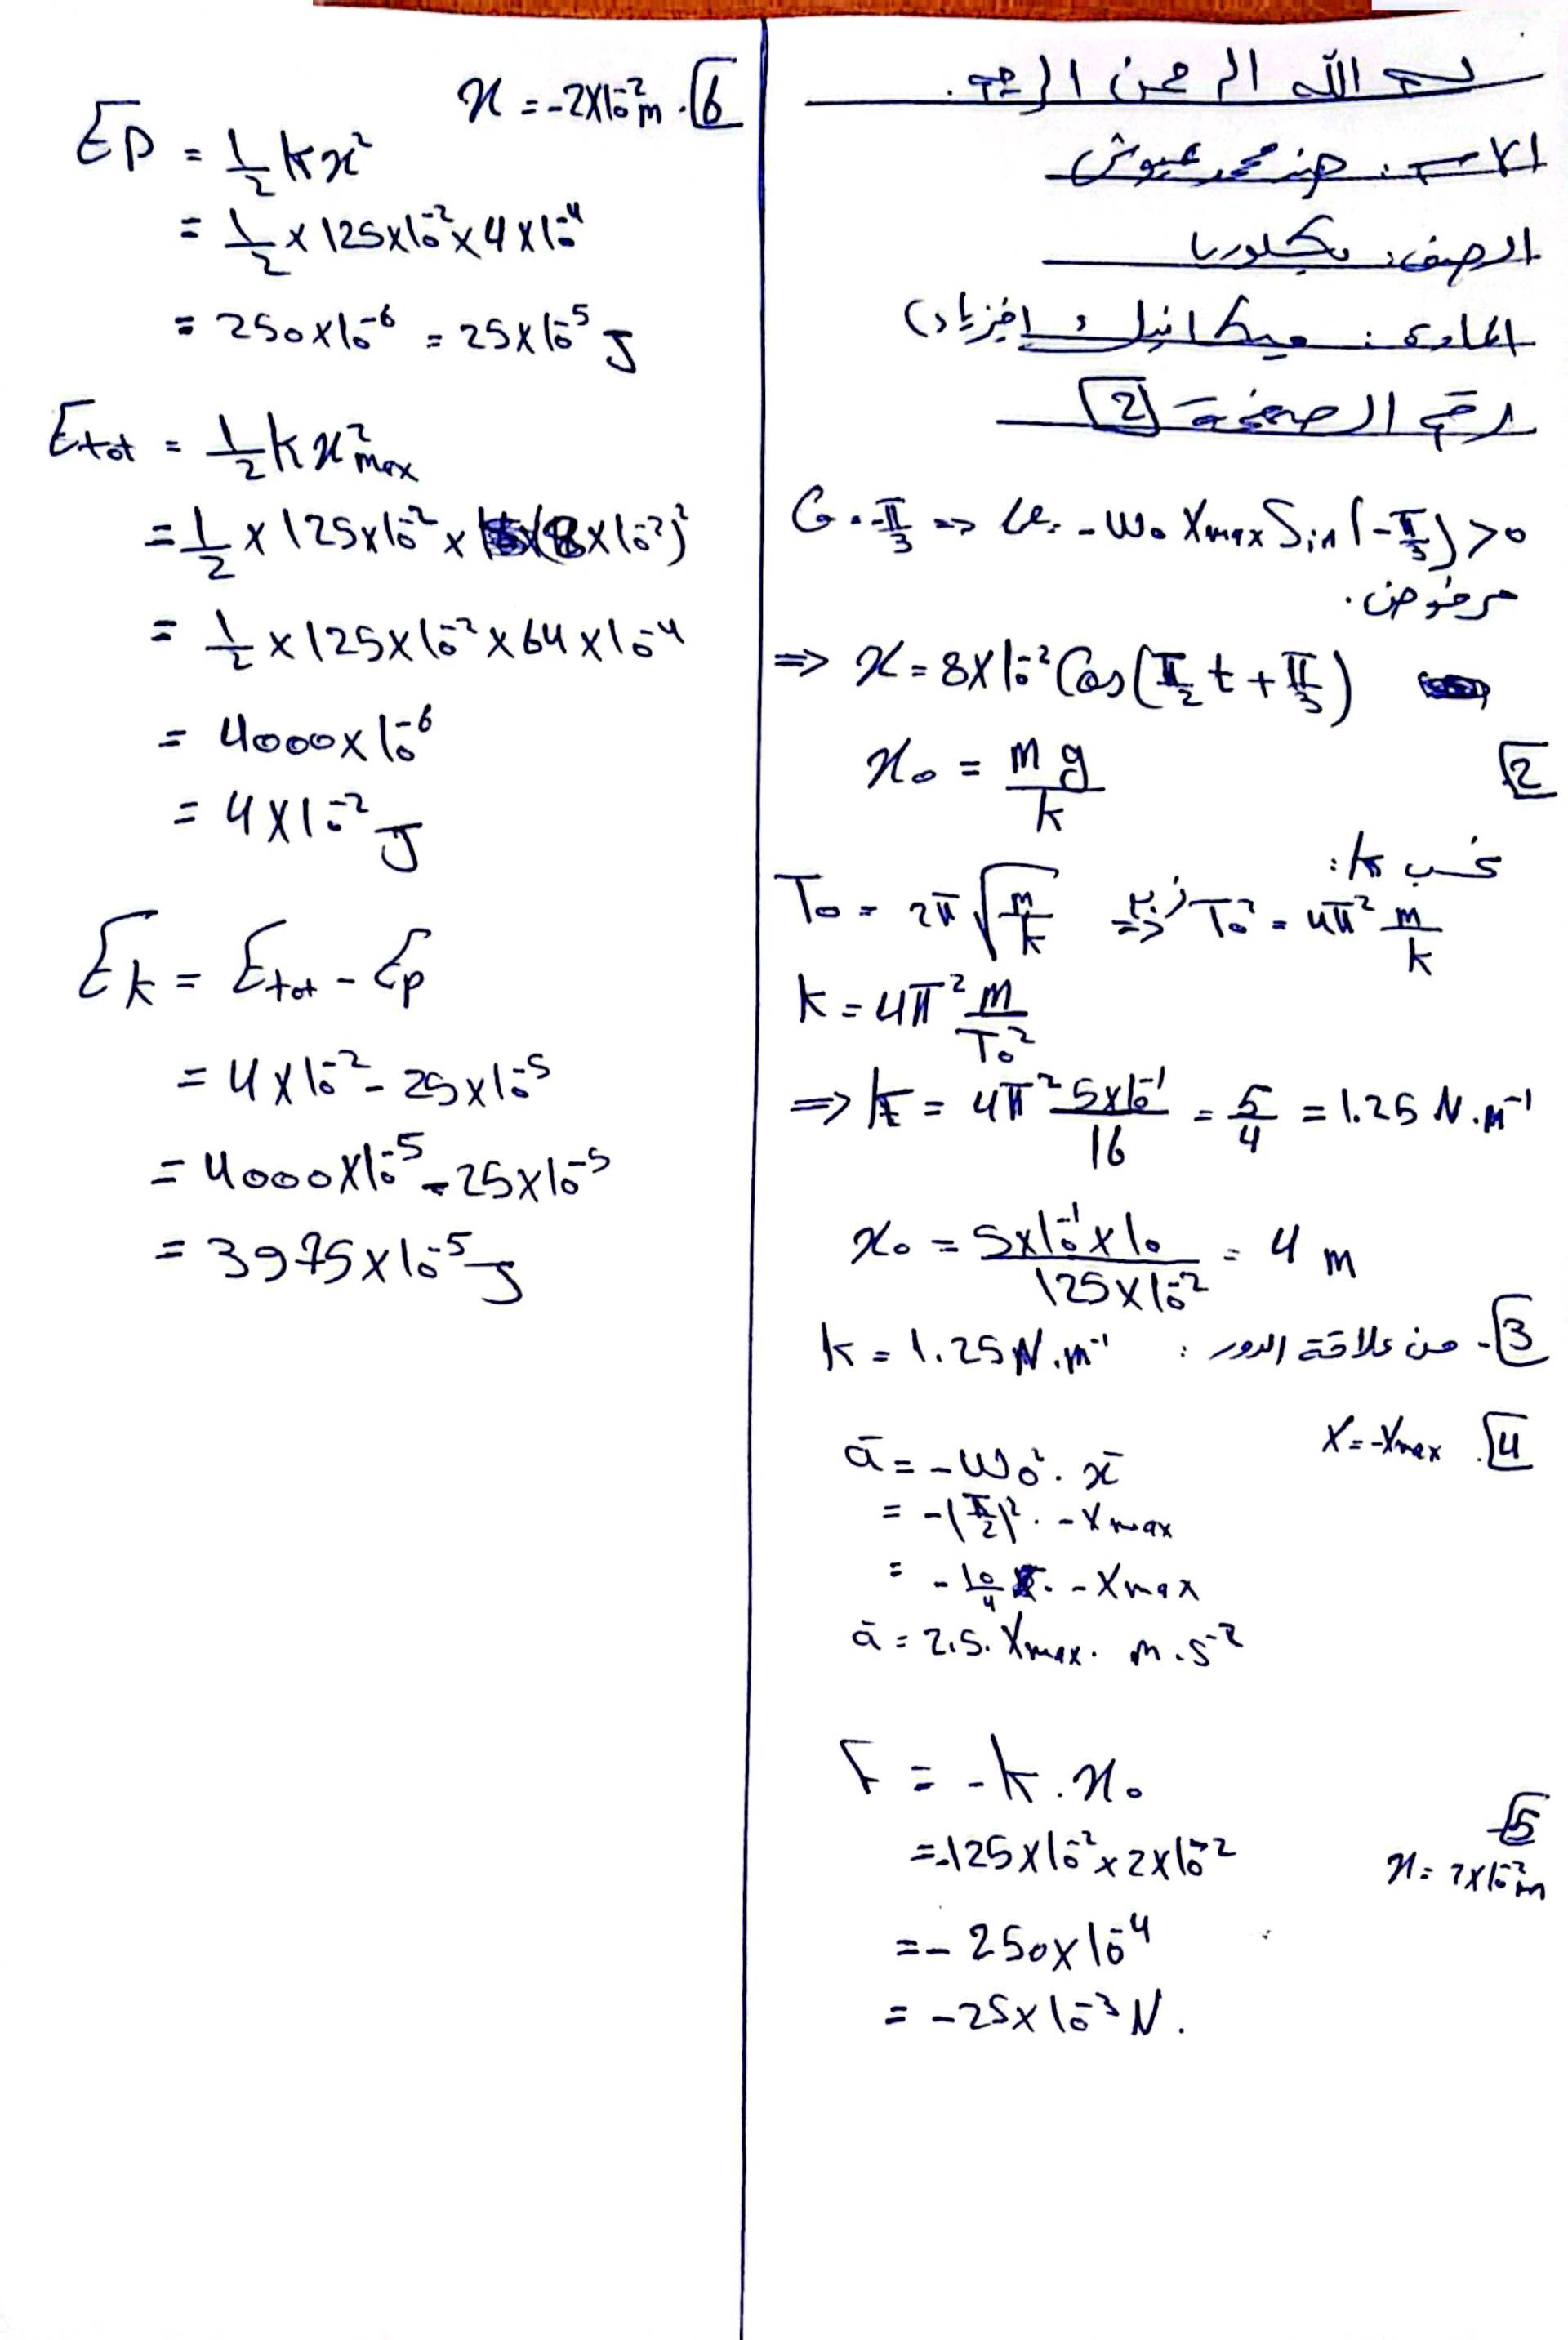 بسم الله الرحمن الرحيم.
الاسم: هند محمد عبوش
الصف: بكلوريا
المادة: ميكانيك (فيزياء)
رقم الصفحة [2]
φ = -π/3 => v = -ω₀ Xmax Sin(-π/3) > 0
مرفوض.
=> x = 8×10⁻² Cos(π/2 t + π/3)
[2] x₀ = mg/k
نحسب k:
T₀ = 2π√(m/k) => نربع T₀² = 4π² m/k
k = 4π² m/T₀²
=> k = 4π² 5×10⁻¹/16 = 5/4 = 1.25 N.m⁻¹
x₀ = 5×10⁻¹×10/125×10⁻² = 4 m
[3]- من علاقة الدور: k = 1.25 N.m⁻¹
[4]. X = -Xmax
ā = -ω₀². x̄
= -(π/2)². -Xmax
= -10/4 . -Xmax
ā = 2.5. Xmax. m.s⁻²
F = -k.x₀
[5] x = 2×10⁻² m
= -125×10⁻²×2×10⁻²
= -250×10⁻⁴
= -25×10⁻³ N.
[6]. x = -2×10⁻² m
Ep = 1/2 kx²
= 1/2 × 125×10⁻²×4×10⁻⁴
= 250×10⁻⁶ = 25×10⁻⁵ J
Etot = 1/2 k x²max
= 1/2 × 125×10⁻² × (8×10⁻²)²
= 1/2 × 125×10⁻² × 64×10⁻⁴
= 4000×10⁻⁶
= 4×10⁻² J
Ek = Etot - Ep
= 4×10⁻² - 25×10⁻⁵
= 4000×10⁻⁵ - 25×10⁻⁵
= 3975×10⁻⁵ J